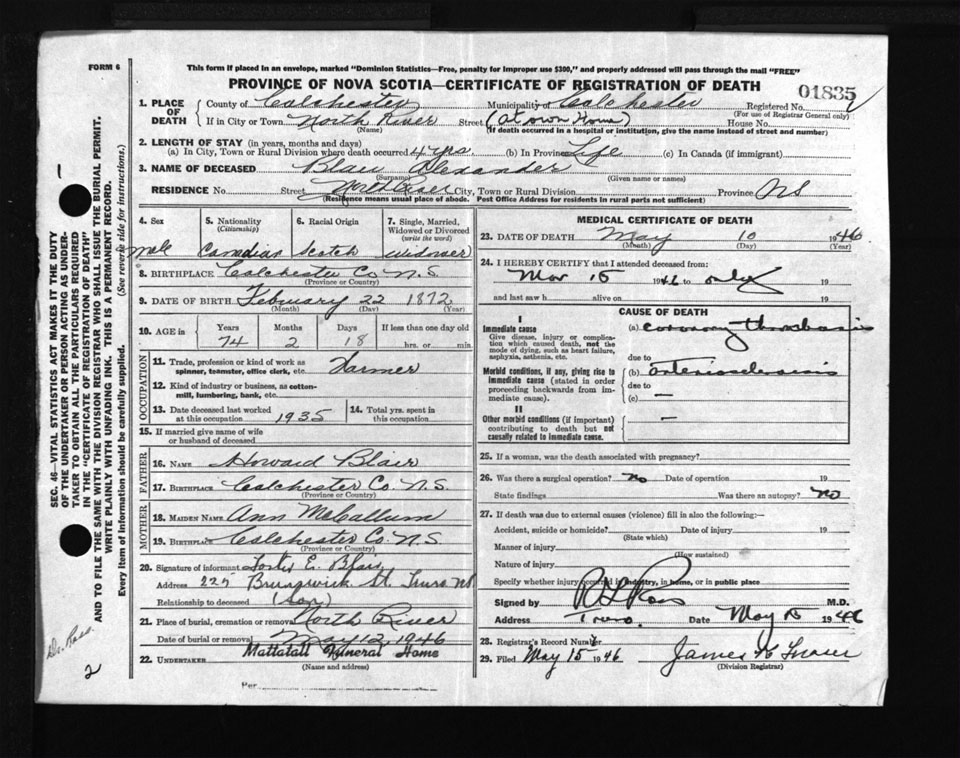 FORM 6
This form if placed in an envelope, marked "Dominion Statistics—Free, penalty for improper use $300," and properly addressed will pass through the mail "FREE"
PROVINCE OF NOVA SCOTIA—CERTIFICATE OF REGISTRATION OF DEATH
01835
1. PLACE OF DEATH County of Colchester Municipality of Colchester Registered No.
(For use of Registrar General only)
If in City or Town North River Street (At own Home) House No.
(Name) (If death occurred in a hospital or institution, give the name instead of street and number)
2. LENGTH OF STAY (in years, months and days)
(a) In City, Town or Rural Division where death occurred 4 yrs. (b) In Province Life (c) In Canada (if immigrant)
3. NAME OF DECEASED Blair Alexander
(Surname) (Given name or names)
RESIDENCE No. Street North River City, Town or Rural Division Province NS
(Residence means usual place of abode. Post Office Address for residents in rural parts not sufficient)
4. Sex 5. Nationality (Citizenship) 6. Racial Origin 7. Single, Married, Widowed or Divorced (write the word)
male Canadian Scotch widower
8. BIRTHPLACE Colchester Co N.S.
(Province or Country)
9. DATE OF BIRTH February 22 1872
(Month) (Day) (Year)
10. AGE in Years Months Days If less than one day old
74 2 18 hrs. or min.
OCCUPATION
11. Trade, profession or kind of work as spinner, teamster, office clerk, etc. Farmer
12. Kind of industry or business, as cotton-mill, lumbering, bank, etc.
13. Date deceased last worked at this occupation 1935 14. Total yrs. spent in this occupation
15. If married give name of wife or husband of deceased
FATHER
16. NAME Howard Blair
17. BIRTHPLACE Colchester Co. N.S.
(Province or Country)
MOTHER
18. MAIDEN NAME Ann McCallum
19. BIRTHPLACE Colchester Co. N.S.
(Province or Country)
20. Signature of informant E. Blair
Address 225 Brunswick St. Truro NS
Relationship to deceased (Son)
21. Place of burial, cremation or removal North River
Date of burial or removal May 12, 1946
22. UNDERTAKER Mattatall Funeral Home
(Name and address)
Per
MEDICAL CERTIFICATE OF DEATH
23. DATE OF DEATH May 10 1946
(Month) (Day) (Year)
24. I HEREBY CERTIFY that I attended deceased from:
Mar 15 1946 to only 19
and last saw h alive on 19
CAUSE OF DEATH
I
Immediate cause (a) coronary thrombosis
Give disease, injury or complication which caused death, not the mode of dying, such as heart failure, asphyxia, asthenia, etc.
due to
Morbid conditions, if any, giving rise to immediate cause (stated in order proceeding backwards from immediate cause). (b) arteriosclerosis
due to
(c) —
II
Other morbid conditions (if important) contributing to death but not causally related to immediate cause. —
25. If a woman, was the death associated with pregnancy?
26. Was there a surgical operation? No Date of operation 19
State findings Was there an autopsy? No
27. If death was due to external causes (violence) fill in also the following:—
Accident, suicide or homicide? Date of injury 19
(State which)
Manner of injury
(How sustained)
Nature of injury
Specify whether injury occurred in industry, in home, or in public place
Signed by Ross M.D.
Address Truro. Date May 15 1946
28. Registrar's Record Number
29. Filed May 15 1946 James
(Division Registrar)
SEC. 46—VITAL STATISTICS ACT MAKES IT THE DUTY
OF THE UNDERTAKER OR PERSON ACTING AS UNDER-
TAKER TO OBTAIN ALL THE PARTICULARS REQUIRED
IN THE "CERTIFICATE OF REGISTRATION OF DEATH"
AND TO FILE THE SAME WITH THE DIVISION REGISTRAR WHO SHALL ISSUE THE BURIAL PERMIT.
WRITE PLAINLY WITH UNFADING INK. THIS IS A PERMANENT RECORD.
Every item of Information should be carefully supplied. (See reverse side for instructions.)
Dr. Ross.
2